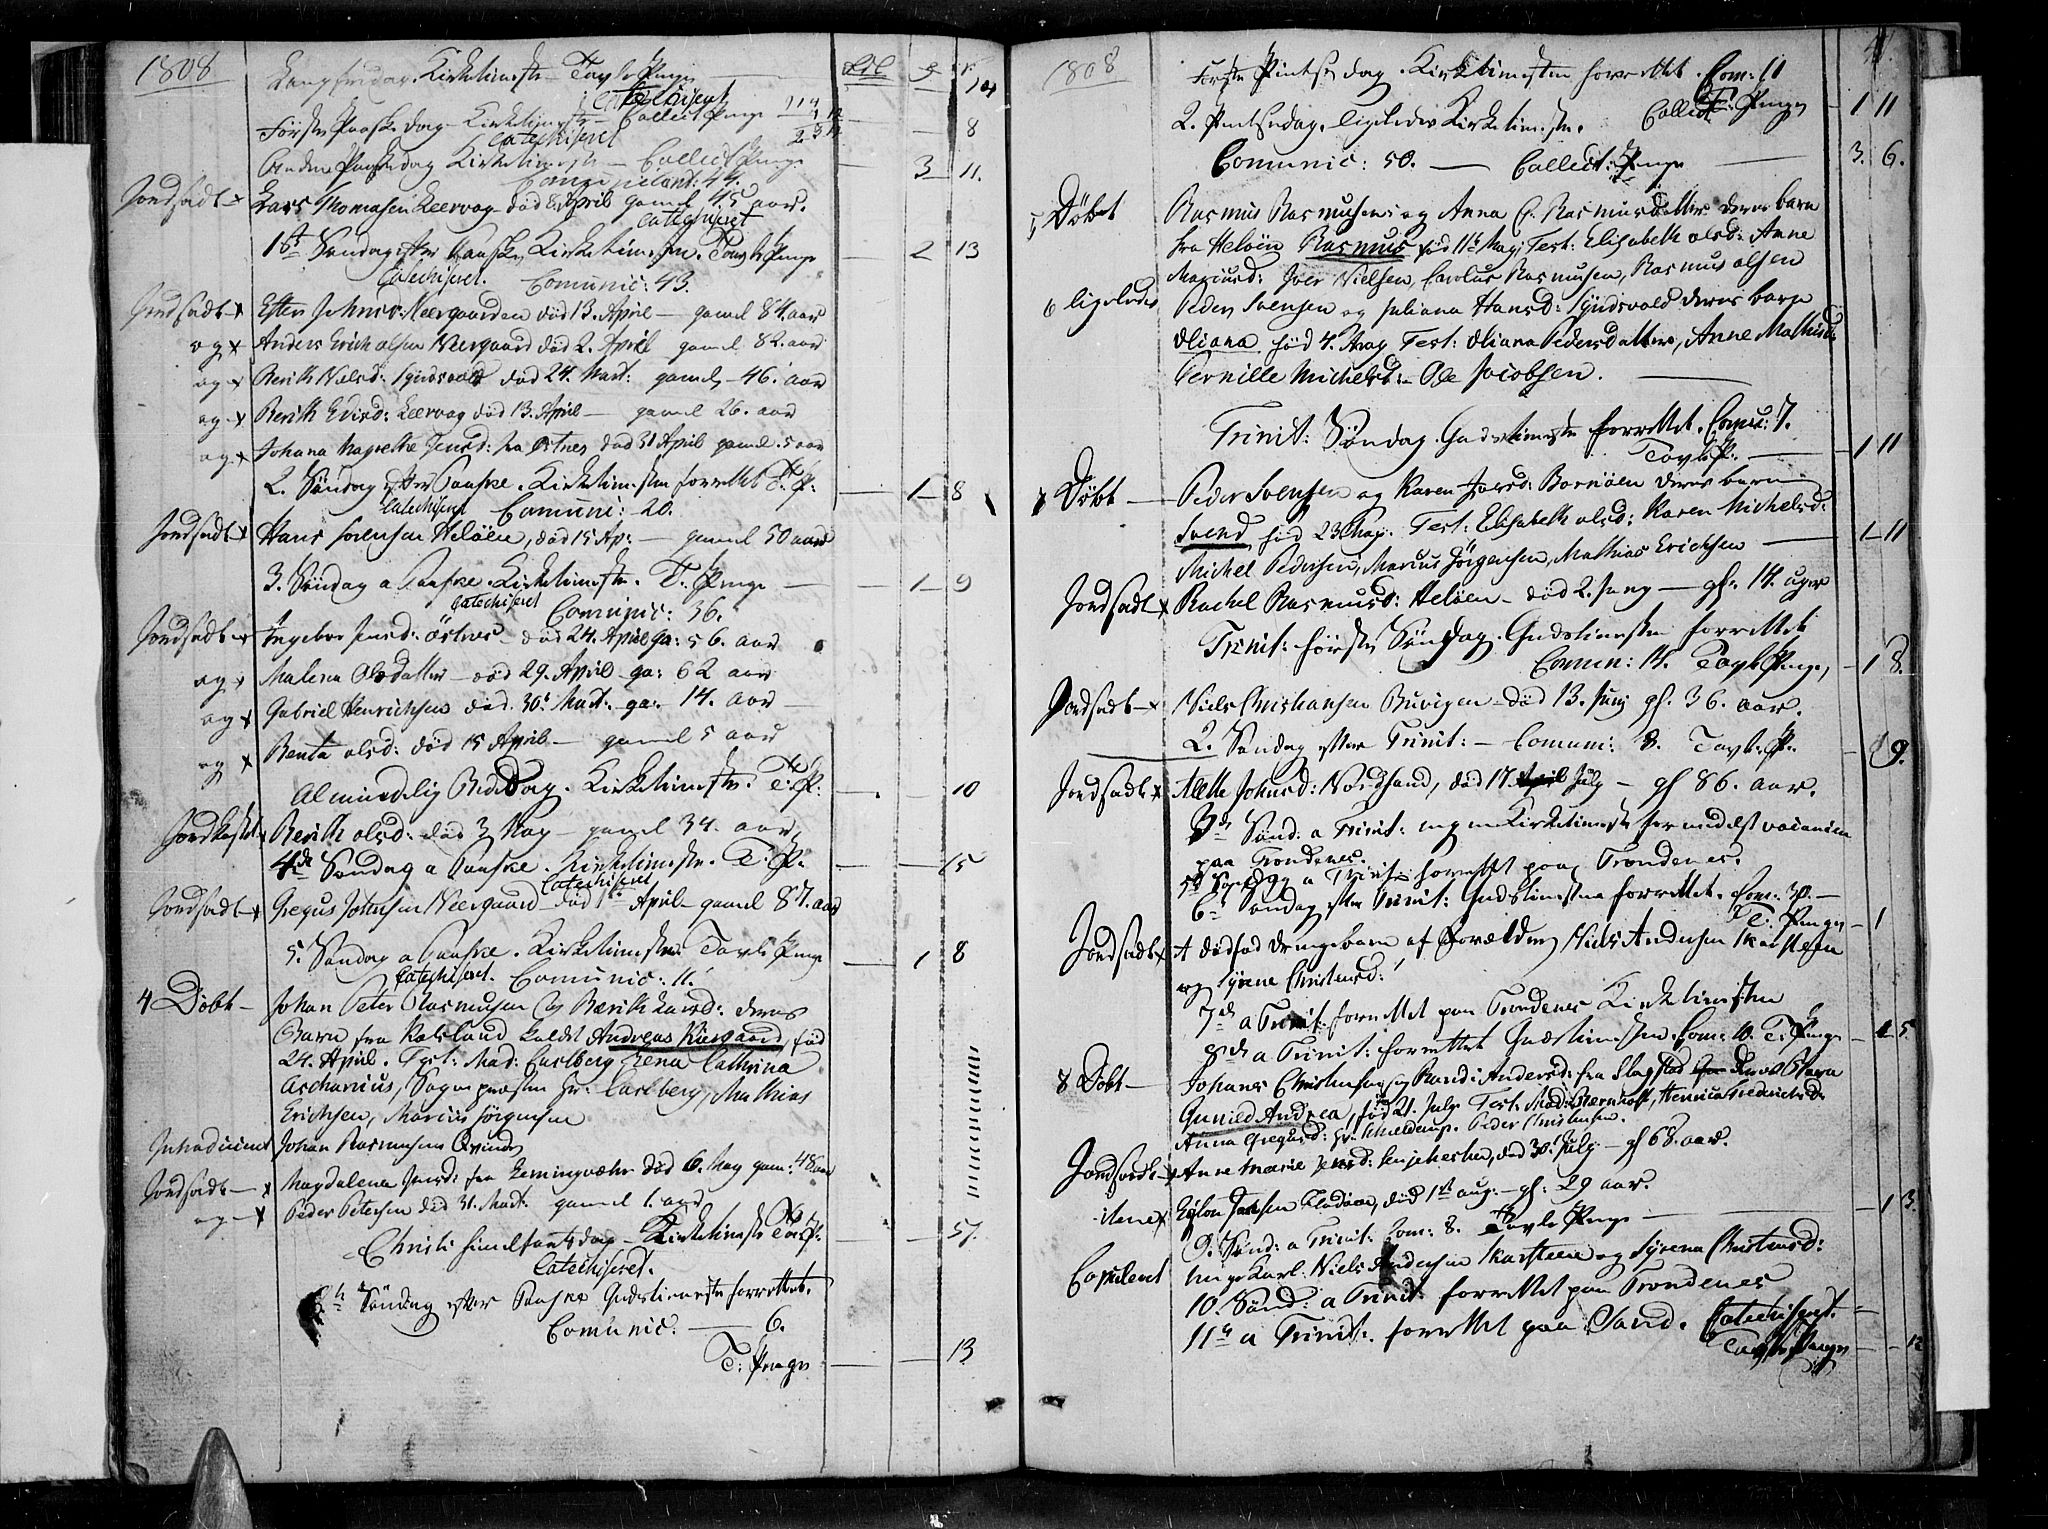 1808
Langfredag. Kirketieneste Tavle Penge 14
Catechiseret
Første Paaske dag. Kirketieneste Collect Penge 8
Catechiseret
Anden Paaskedag Kirketieneste — Collect Penge 3 11.
Comunicant: 44.
Jordfæstet Lars Thomasen Leervog død April gamel 45 aar.
Catechiseret
1te Søndag efter Paaske Kirketieneste. Tavle Penge 2 13
Catechiseret. Comunic: 43.
Jordfæstet Ester Johns: Neergaarden død 13. April — gamel 84. aar
og Anders Erich olsen Neergaard død 2. April gamel 82. aar
og Berith Nielsd: Syndsvold død 24. Mart: gamel 46. aar
og Berith Evisd: Leervog død 13. April — gamel 26. aar
og Johana Magrethe Jensd: fra Østnes død 31 April gamel 5 aar
2. Søndag efter Paaske. Kirketienesten forrettet T. P: 1 8
Catechiseret Comunic: 20.
Jordfæstet Hans Sorensen Heløen, død 15 Ap: — gamel 50 aar
3. Søndag a Paaske. Kirketieneste. T. Penge — 1 9
Catechiseret Comunic: 36.
Jordfæstet Ingebor Jensd: Østnes — død 24. April ga: 56. aar
og Malena Olsdatter — død 29. April ga: 62 aar
og Gabriel Henrichsen død. 30t Mart: ga: 14. aar
og Benta olsd: død 15 April — gamel 5 aar
Almindelig Bededag. Kirketieneste. T: P: 10
Jordkastet Berith olsd: død 3 May — gamel 34. aar
4de Søndag a Paaske. Kirketieneste. T: P. 15
Catechiseret
Jordfæstet Gregus Johnsen Neergaard død 1te April — gamel 87. aar
5. Søndag a Paaske. Kirketieneste Tavle Penge 1 8
Catechiseret. Comunic: 11.
4 Døbt — Johan Peter Rasmusen og Berith Larsd: deres
Barn fra Rolsland kaldt Andreas Kiergaard, fød
24. April. Test: Mad: Carlberg, Lena Cathrina
Ascharius, Sognepræsten Hr: Carlberg, Mathias
Erichsen, Marcus Jørgensen
Introduceret Johan Rasmusens Qvinde
Jordfæstet — Magdalena Jensd: fra Kemingvæhr død 6. May gam: 48 aar
og — Peder Petersen død 31. Mart. gamel 1. aar
Christi Himelfartsdag — Kirketieneste Tav: P: 57.
Catechiseret.
6te Søndag efter Paaske Gudstieneste forrettet.
Comunic: — 6.
T: Penge 13
1808 41.
Første Pintse dag. Kirketienesten forrettet. Com: 11
T: Penge 1 11
2. Pintsedag. ligeledes Kirketieneste. Collect
Comunic: 50. — Collect: Penge 3. 6.
5 Døbt Rasmus Rasmusens og Anna C. Rasmusdatters deres barn
fra Heløen Rasmus, fød 11t May; Test: Elisabeth olsd: Anne
Mariusd: Iver Nielsen, Carolus Rasmusen, Rasmus olsen
6 ligeledes Peder Svensen og Juliana Hansd: Syndsvold deres barn
Oliana fød 4. May Test: Oliana Pedersdatter, Anne Mathisd:
Pernille Michelsd: — Ole Jacobsen.
Trinit: Søndag. Gudstieneste forrettet. Comu: 7.
Tavle P: — 1 11
7 Døbt — Peder Svensen og Karen Iversd: Bornøen deres barn
Svend fød 23 May. Test: Elisabeth olsd: Karen Michelsd:
Michel Pedersen, Marcus Jørgensen, Mathias Erichsen — 1 11
Jordfæstet Rachel Rasmusd: Heløen — død 2. Juny — gl: 14. uger
Trinit: første Søndag. Gudstienesten forrettet
Comun: 14. Tavle Penge, 1 8.
Jordfæstet Niels Christiansen Buvigen — død 13. Junj gl. 36. aar.
2. Søndag efter Trinit: — Comuni: 8. Tavle P. 9.
Jordfæstet Aleth Johnsd: Nordsand, død 17. July — gl 86. aar.
3de Sønd: a Trinit: ingen Kirketieneste formedelst vacancen
paa Trondenes.
5te Søndag a Trinit: forrettet paa Trondenes.
6te Søndag efter Trinit: Gudstienesten forrettet. Com: 30. —
T. Penge 1
Jordfæstet Et dødfød drengebarn af Forældre Niels Andersen Skarsteen
og Syrene Christensd:
7de a Trinit: forrettet paa Trondenes Kirketienesten
8de a Trinit: forrettet Gudstienesten. Com: 10. T. Penge — 1 5.
8 Døbt — Johanes Christensen og Randi Andersd: fra Slagstad deres Barn
Gunild Andrea, fød 21. July Test: Mad: Biernhoft, Henrica Frederichsd:
Anna Gregusd: Peder Christensen.
Jordfæstet Anne Marie Jensd: Senjehesten, død 30. July — gl 68. aar.
item Eylon Jonsen Fladøen, død 1te aug: — gl: 29 aar.
9. Sønd: a Trinit: Com: 8. Tavle Penge — 1 3.
Copuleret Unge Karl: Niels Andersen Skarsteen og Syrena Christensd:
10. Sønd: a Trinit: forrettet paa Trondenes
11te a Trinit: forrettet paa Sand. Catechiseret.
Tavle Penge 12